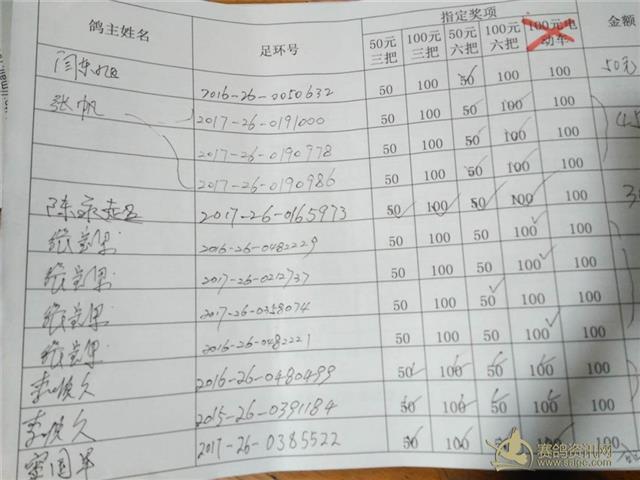 鸽主姓名 足环号 指定奖项 金额
50元三把 100元三把 50元六把 100元六把 100元电动车
闫东旭 2016-26-0050632 50 100 50 100 100 50元
张帆 2017-26-0191000 50 100 50 100 100
2017-26-0190778 50 100 50 100 100
2017-26-0190986 50 100 50 100 100
陈永 2017-26-0165973 50 100 50 100 100
2016-26-0482229 50 100 50 100 100
2017-26-0212737 50 100 50 100 100
2017-26-0358074 50 100 50 100 100
2016-26-0482221 50 100 50 100 100
李俊久 2016-26-0480499 50 100 50 100 100
李俊久 2015-26-0391184 50 100 50 100 100
国军 2017-26-0385522 50 100 50 100
赛鸽资讯网
www.saige.com